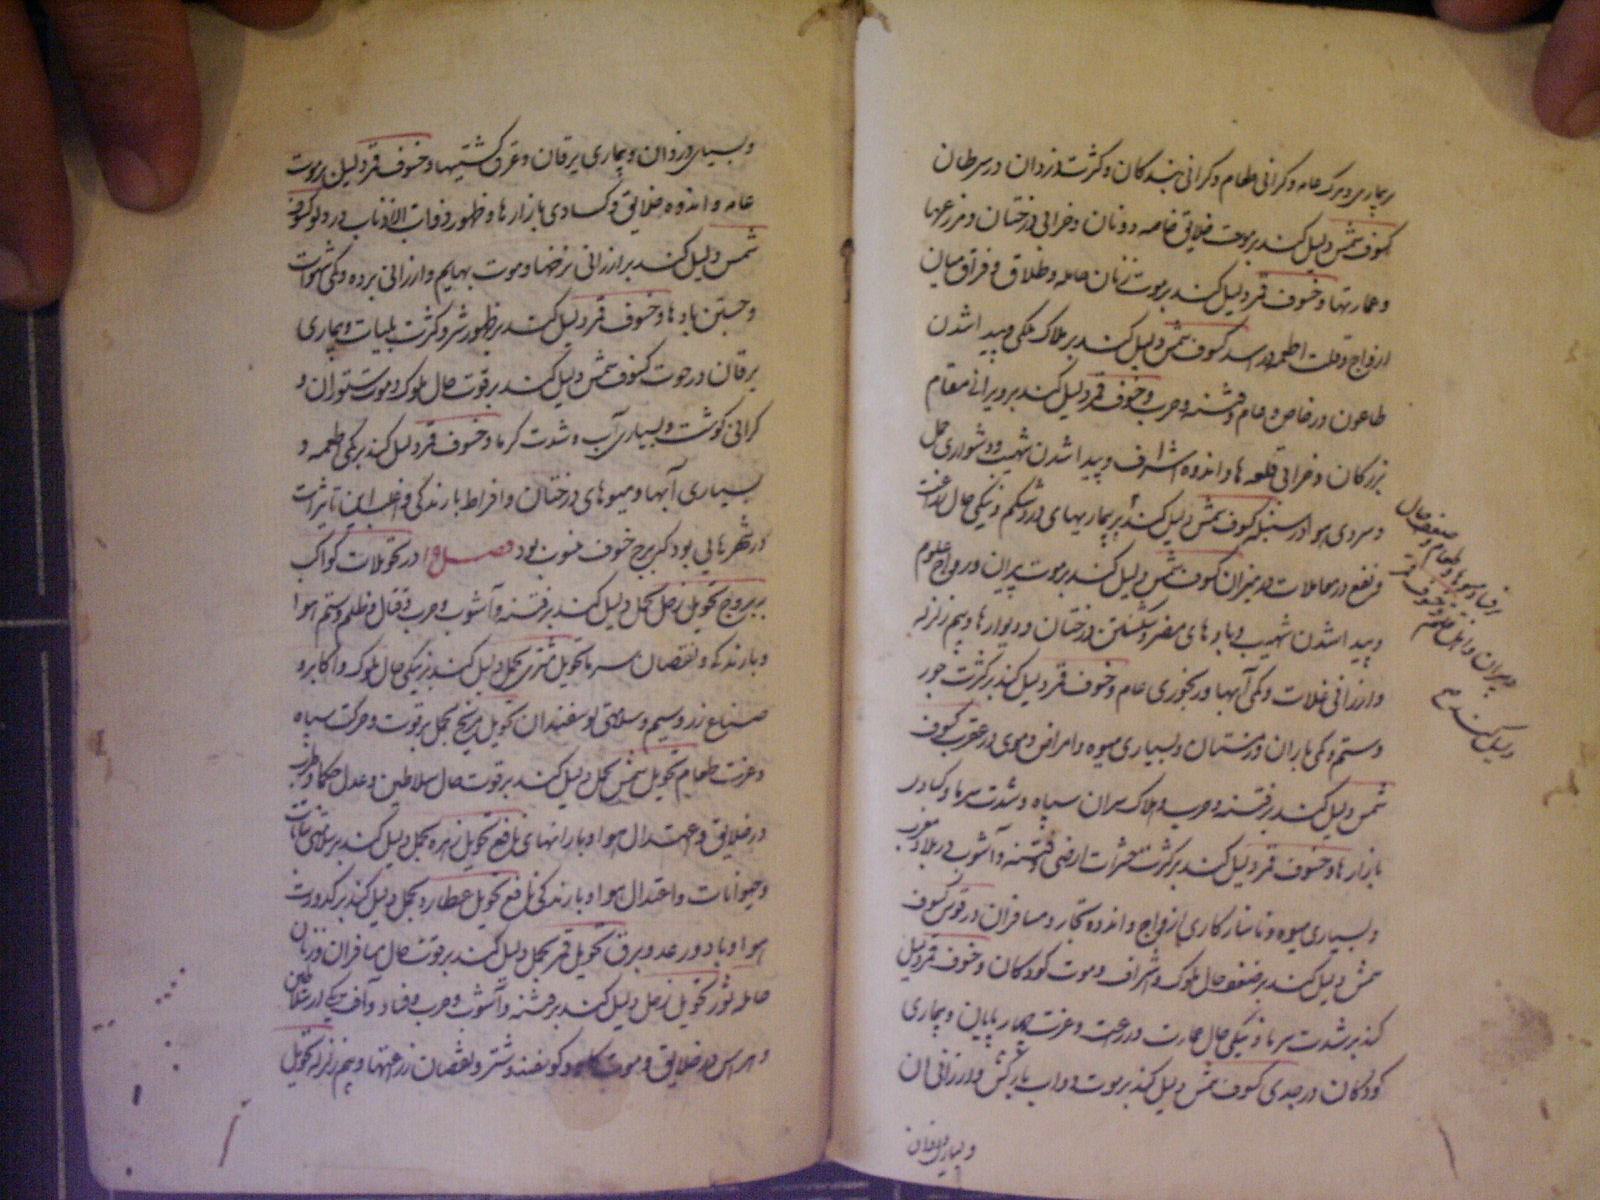 بر بیماری و مرگ عامه و گرانی طعام و گرانی بندگان و کثرت دزدان در سرطان
کسوف شمس دلیل کند بر موت خلایق خاصه دونان و خرابی درختان و مزرعها
و عمارتها و خسوف قمر دلیل کند بر موت زنان حامله و طلاق و فراق میان
ازواج و قلت اطعمه در اسد کسوف شمس دلیل کند بر هلاک ملکی و پیدا شدن
طاعون در خاص و عام و فتنه و حرب و خسوف قمر دلیل کند بر ویرانی مقام
بزرگان و خرابی قلعه ها و اندوه اشراف و پیدا شدن شهب و دشواری حمل
و سردی هوا در سنبله کسوف شمس دلیل کند بر بیماریهای درد شکم و نیکی حال
و نفع در معاملات در میزان کسوف شمس دلیل کند بر موت پیران و رواج علوم
و پیدا شدن شهب و بادهای مضر و شکستن درختان و دیوارها و بیم زلزله
و ارزانی غلات و کمی آبها و رنجوری عام و خسوف قمر دلیل کند بر کثرت جور
و ستم و کمی باران و زمستان و بسیاری میوه و امراض دموی در عقرب کسوف
شمس دلیل کند بر فتنه و حرب و هلاک سران سپاه و شدت سرما و کساد
بازارها و خسوف قمر دلیل کند بر کثرت حشرات ارضی و فتنه و آشوب در بلاد مغرب
و بسیاری میوه و ناسازگاری ازواج و اندوه تجار و مسافران در قوس کسوف
شمس دلیل کند بر ضعف حال ملوک و اشراف و موت کودکان و خسوف قمر دلیل
کند بر شدت سرما و نیکی حال عمارت و زراعت و عزت چهارپایان و بیماری
کودکان در جدی کسوف شمس دلیل کند بر موت دواب بارکش و ارزانی آن
و بسیاری دزدان
میوها و طعام و ضعف حال
و خسوف قمر
دبیران و اهل قلم
دلیل کند
و بسیاری دزدان و بیماری یرقان و غرق کشتیها و خسوف قمر دلیل بر موت
عامه و اندوه خلایق و کسادی بازارها و ظهور ذوات الاذناب در دلو کسوف
شمس دلیل کند بر ارزانی نرخها و موت بهایم و ارزانی برده و کمی
و جستن بادها و خسوف قمر دلیل کند بر ظهور شر و کثرت بلیات و بیماری
یرقان در حوت کسوف شمس دلیل کند بر قوت حال ملوک و موت ستوران و
گرانی گوشت و بسیاری آب و شدت گرما و خسوف قمر دلیل کند بر کمی طعمه و
بسیاری آبها و میوهای درختان و افراط بارندگی و اغلب این تاثیرات
در شهرهایی بود که ببرج خسوف منسوب بود فصل ۱۹ در تحویلات کواکب
ببروج تحویل زحل بحمل دلیل کند بر فتنه و آشوب و حرب و قتال و ظلم و ستم هوا
و بارندگی و نقصان سرما تحویل مشتری بحمل دلیل کند بر نیکی حال ملوک و اکابر و
صناع زر و سیم و سلامتی گوسفندان تحویل مریخ بحمل بر قوت و حرکت سپاه
و عزت طعام تحویل شمس بحمل دلیل کند بر قوت حال سلاطین و عدل حکام و طرب
در خلایق و اعتدال هوا و بارانهای نافع تحویل زهره بحمل دلیل کند بر سلامتی نباتات
و حیوانات و اعتدال هوا و بارندگی نافع تحویل عطارد بحمل دلیل کند بر کدورت
هوا و باد و رعد و برق تحویل قمر بحمل دلیل کند بر قوت حال مسافران و زنان
حامله ثور تحویل زحل دلیل کند بر فتنه و آشوب و حرب و فساد و آفت
و هراس در خلایق و موت گاو و گوسفند و شتر و نقصان زرعتها و بیم زلزله تحویل